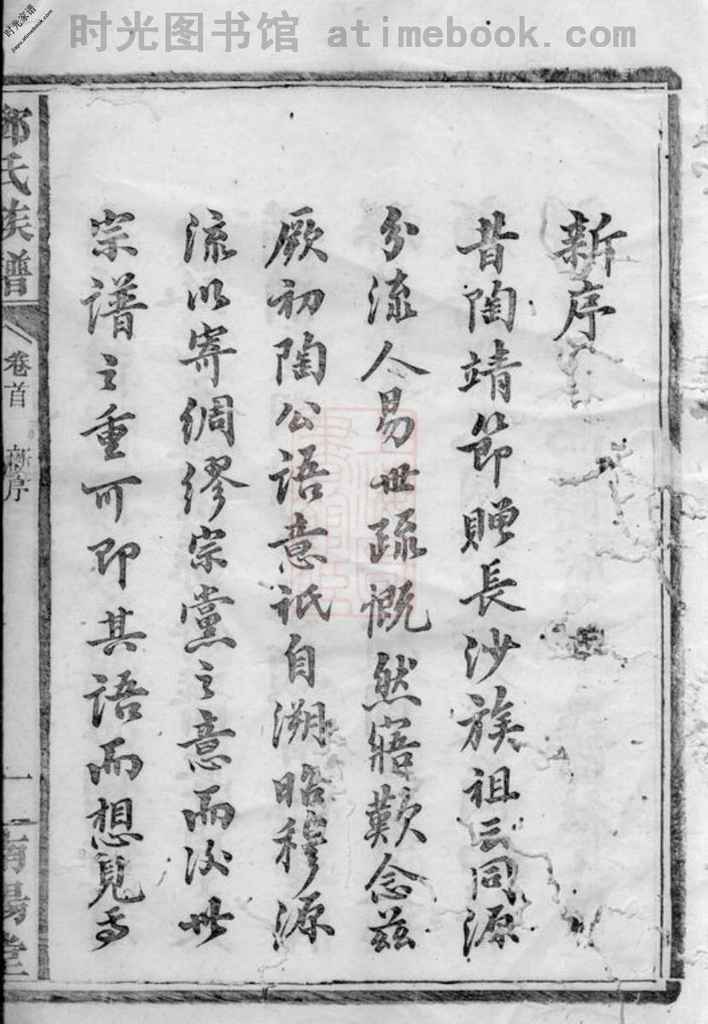 时光图书馆 atimebook.com
时光家谱
新序
昔陶靖節贈長沙族祖云同源
分流人易世疏慨然寤歎念茲
厥初陶公語意祇自溯昭穆源
流以寄綢繆宗黨之意而後世
宗譜之重可即其語而想見焉
鄧氏族譜
卷首 新序
一
南陽堂